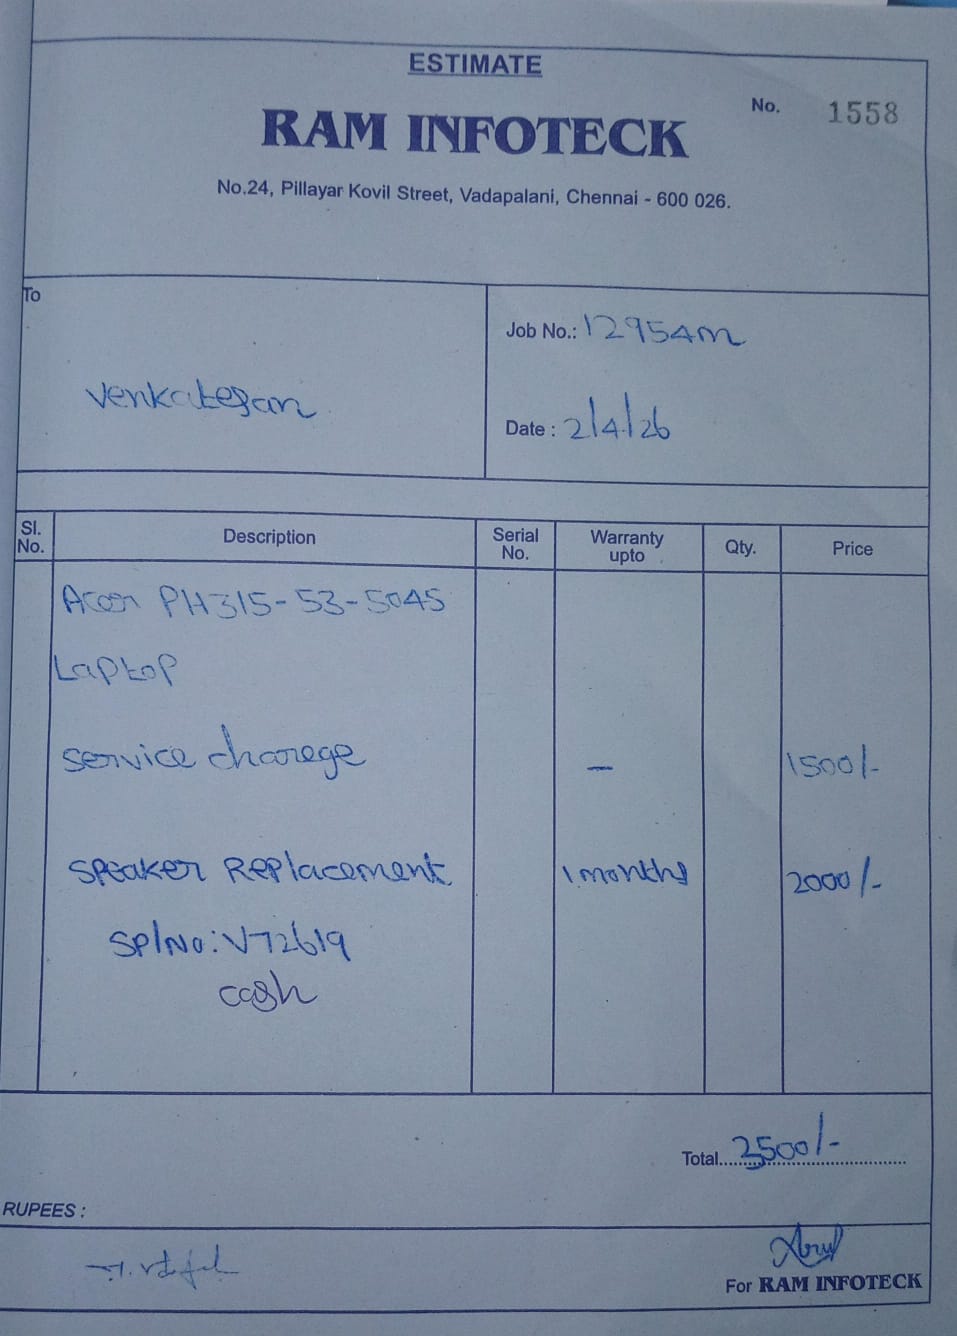 ESTIMATE
No. 1558
RAM INFOTECK
No.24, Pillayar Kovil Street, Vadapalani, Chennai - 600 026.
To
Venkatesan
Job No.: 12954m
Date : 2/4/26
Sl. No. Description Serial No. Warranty upto Qty. Price
Acer PH315-53-504S
Laptop
Service charege - 1500/-
Speaker Replacement 1 months 2000/-
SP/No: V72619
cash
Total 3500/-
RUPEES :
For RAM INFOTECK